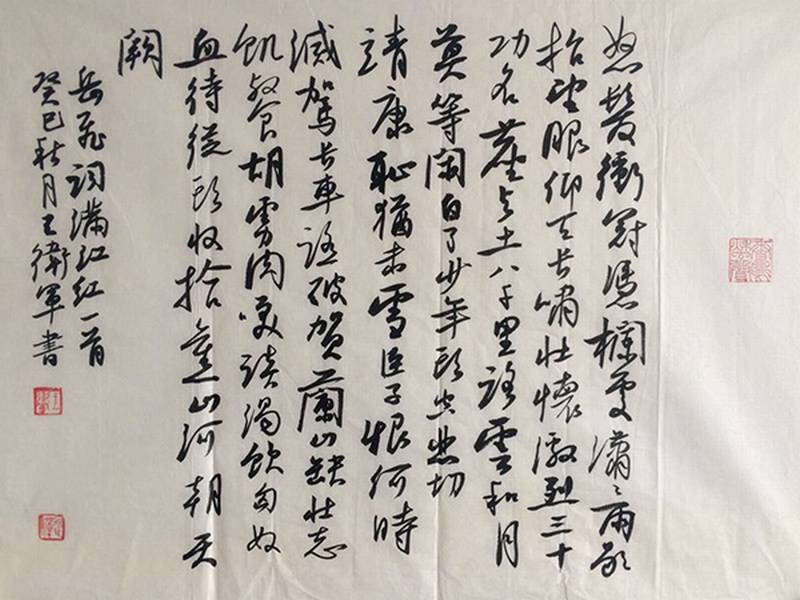 怒髮衝冠憑欄處瀟〻雨歇
抬望眼仰天長嘯壯懷激烈三十
功名塵与土八千里路雲和月
莫等閑白了少年頭空悲切
靖康恥猶未雪臣子恨何時
滅駕長車踏破賀蘭山缺壯志
飢餐胡虜肉笑談渴飲匈奴
血待從頭收拾舊山河朝天
闕
岳飛詞滿江紅一首
癸巳秋月王衛軍書